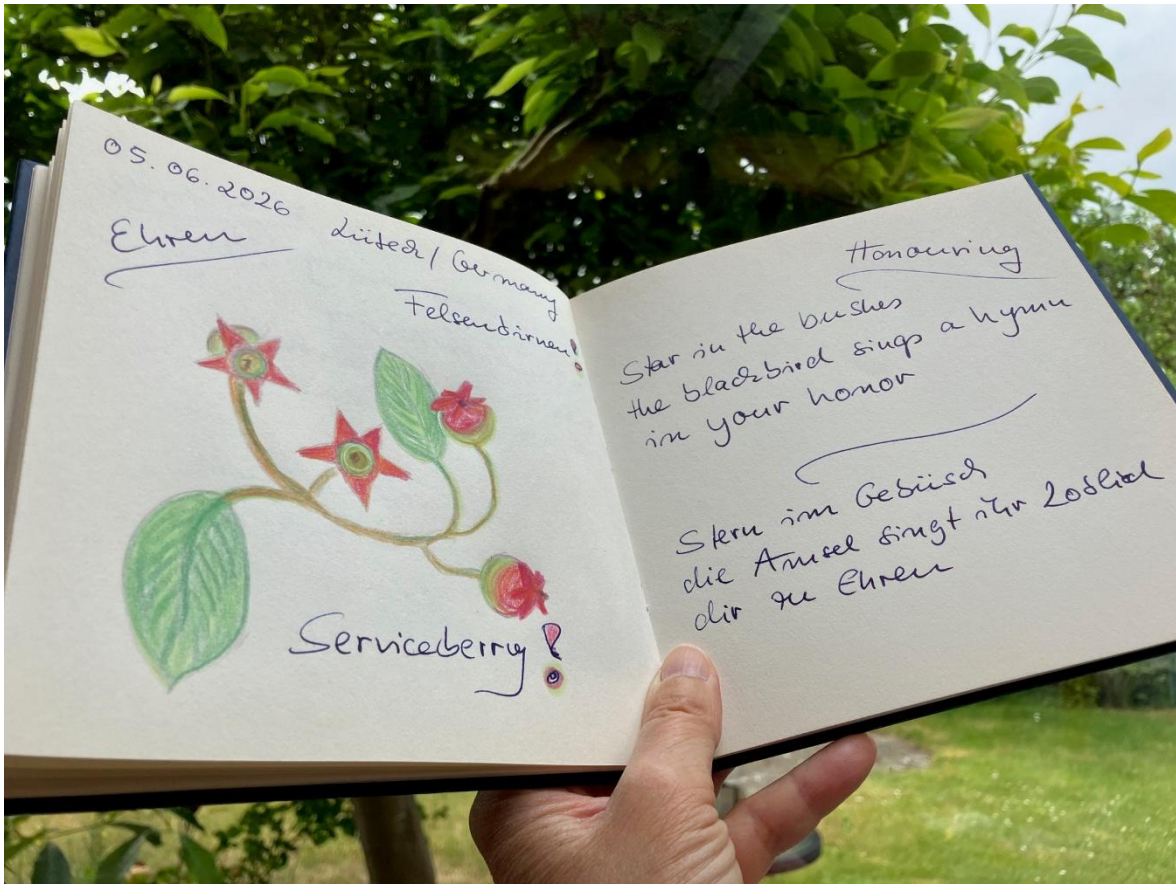 05.06.2026
Ehren
Lübeck/Germany
Felsenbirnen!
Serviceberry!
Honouring
Star in the bushes
the blackbird sings a hymn
in your honor
Stern im Gebüsch
die Amsel singt ihr Loblied
dir zu Ehren